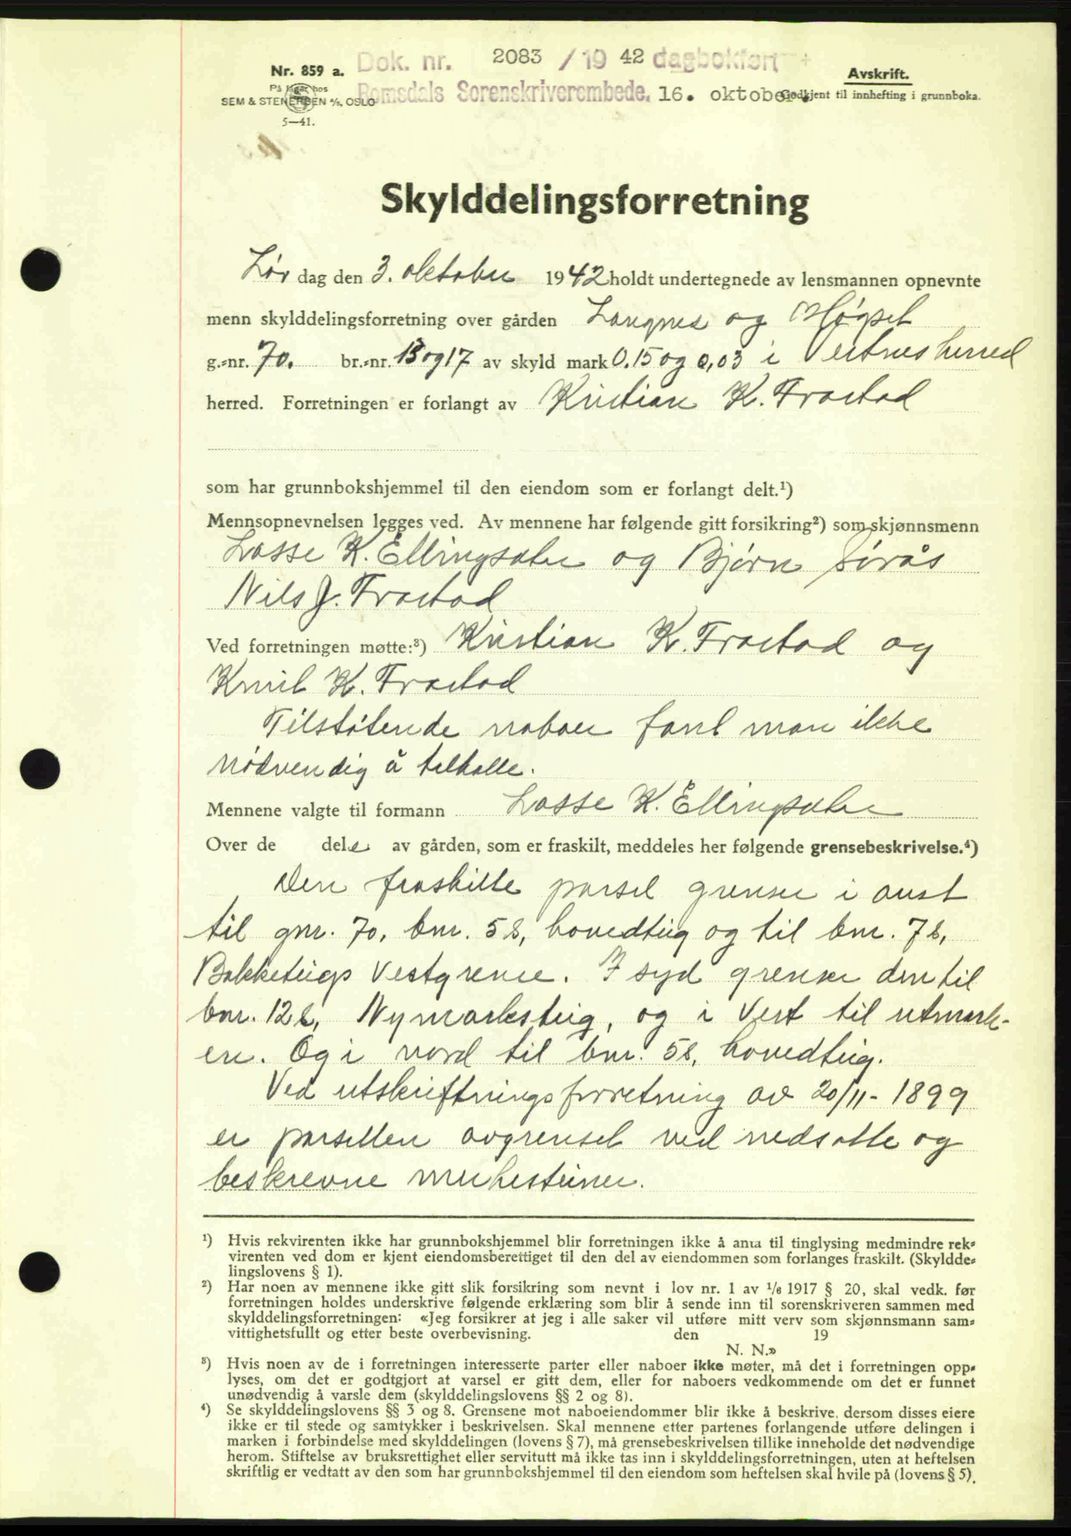 Nr. 859 a.
På lager hos
SEM & STENERSEN A/S, OSLO
5—41.
Dok. nr. 2083 / 19 42 dagbokført
Romsdals Sorenskriverembede, 16. oktober.
Avskrift.
Godkjent til innhefting i grunnboka.
Skylddelingsforretning
Lør dag den 3. oktober 1942 holdt undertegnede av lensmannen opnevnte
menn skylddelingsforretning over gården Langnes og Høgset
g.-nr. 70. br.-nr. 13 og 17 av skyld mark 0,15 og 0,03 i Vestnes herred
herred. Forretningen er forlangt av Kristian K. Frostad
som har grunnbokshjemmel til den eiendom som er forlangt delt.¹)
Mennsopnevnelsen legges ved. Av mennene har følgende gitt forsikring²) som skjønnsmenn
Lasse K. Ellingsæter og Bjørn Sørås
Nils J. Frostad
Ved forretningen møtte:³) Kristian K. Frostad og
Knut K. Frostad
Tilstøtende naboer fant man ikke
nødvendig å tilkalle.
Mennene valgte til formann Lasse K. Ellingsæter
Over de dele av gården, som er fraskilt, meddeles her følgende grensebeskrivelse.⁴)
Den fraskilte parsel grenser i aust
til gnr. 70, bnr. 5 &, hovedteig og til bnr. 7 &,
Bakketeigs vestgrense. I syd grenser den til
bnr. 12 &, Nymarksteig, og i vest til utmark-
en. Og i nord til bnr. 5 &, hovedteig.
Ved utskiftningsforretning av 20/11- 1899
er parsellen avgrenset ved nedsatte og
beskrevne merkesteiner.
¹) Hvis rekvirenten ikke har grunnbokshjemmel blir forretningen ikke å anta til tinglysing medmindre rek-
virenten ved dom er kjent eiendomsberettiget til den del av eiendommen som forlanges fraskilt. (Skyldde-
lingslovens § 1).
²) Har noen av mennene ikke gitt slik forsikring som nevnt i lov nr. 1 av ¹/₆ 1917 § 20, skal vedk. før
forretningen holdes underskrive følgende erklæring som blir å sende inn til sorenskriveren sammen med
skylddelingsforretningen: «Jeg forsikrer at jeg i alle saker vil utføre mitt verv som skjønnsmann sam-
vittighetsfullt og etter beste overbevisning. den 19
N. N.»
³) Hvis noen av de i forretningen interesserte parter eller naboer ikke møter, må det i forretningen opp-
lyses, om det er godtgjort at varsel er gitt dem, eller for naboers vedkommende om det er funnet
unødvendig å varsle dem (skylddelingslovens §§ 2 og 8).
⁴) Se skylddelingslovens §§ 3 og 8. Grensene mot naboeiendommer blir ikke å beskrive, dersom disses eiere
ikke er til stede og samtykker i beskrivelsen. Skal mennene etter partenes forlangende utføre delingen i
marken i forbindelse med skylddelingen (lovens § 7), må grensebeskrivelsen tillike inneholde det nødvendige
herom. Stiftelse av bruksrettighet eller servitutt må ikke tas inn i skylddelingsforretningen, uten at heftelsen
skriftlig er vedtatt av den som har grunnbokshjemmel til den eiendom som heftelsen skal hvile på (lovens § 5).